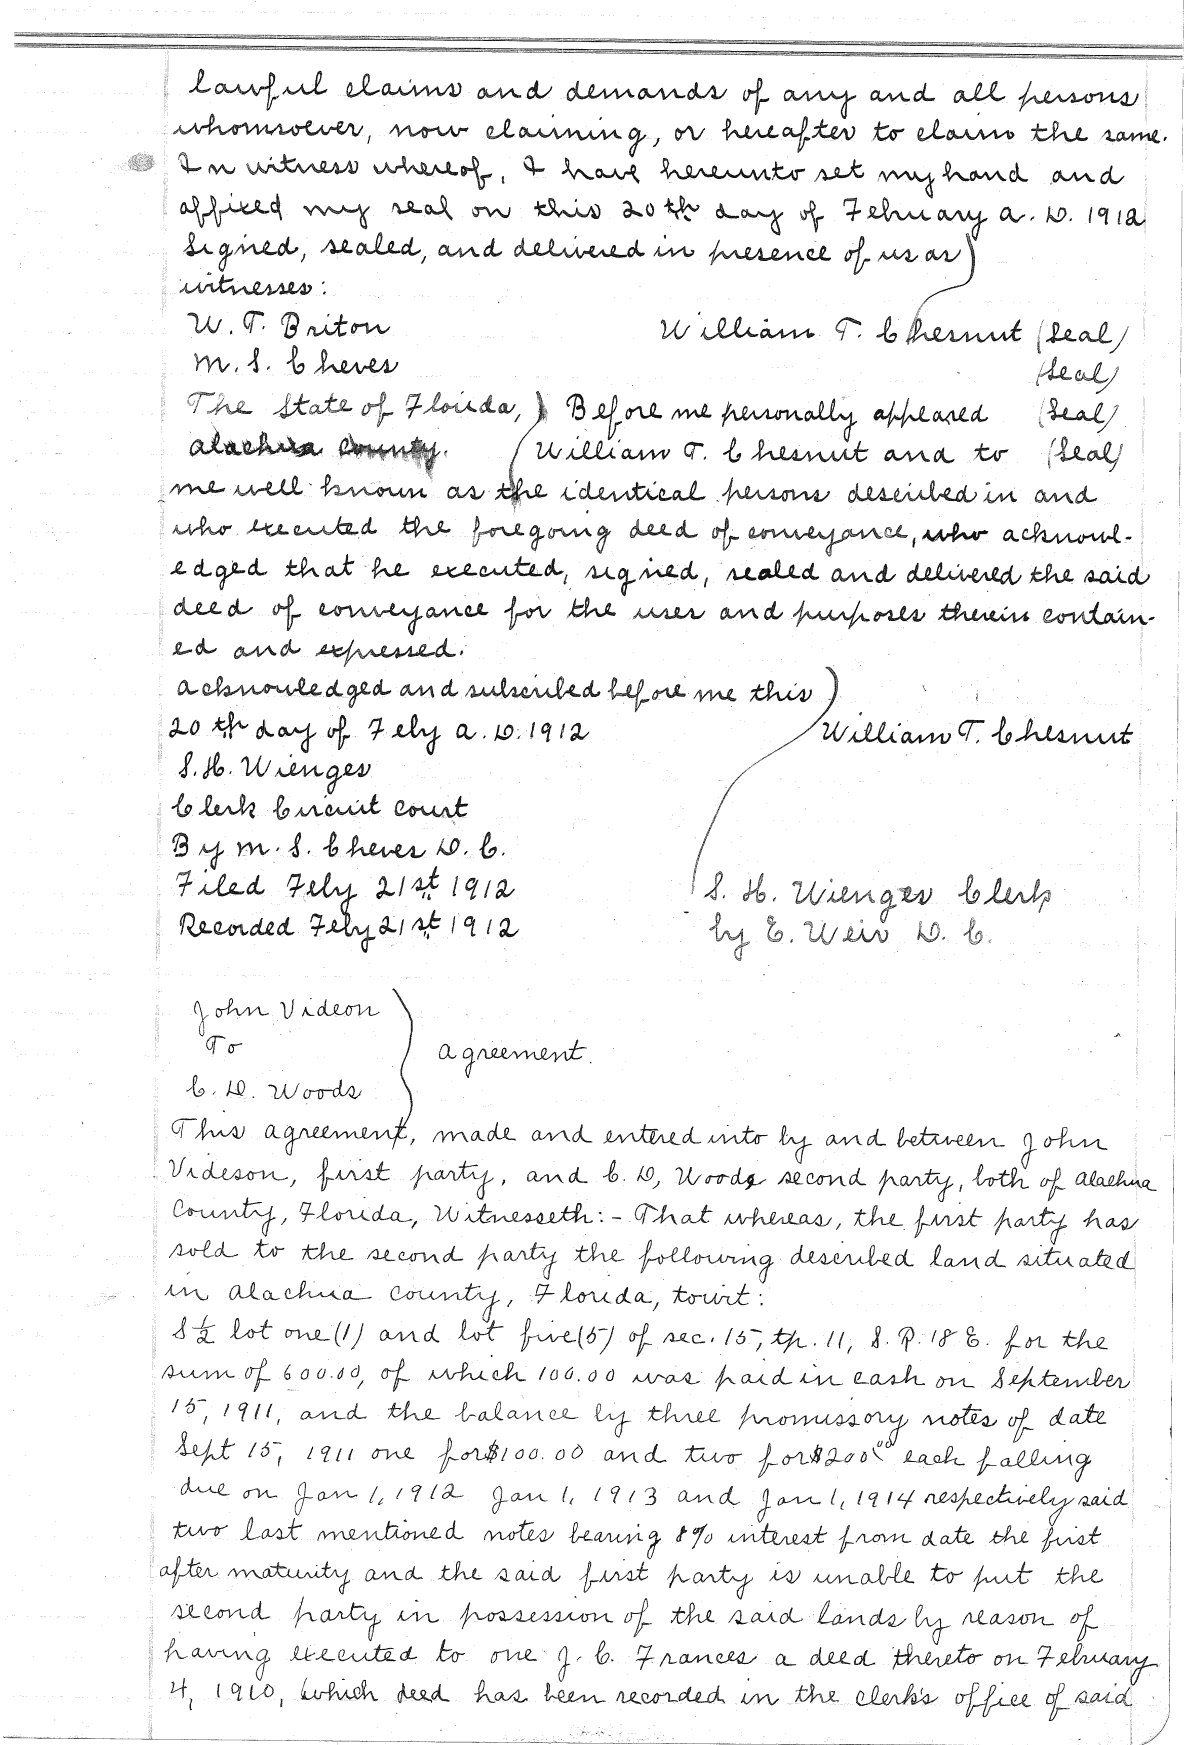 lawful claims and demands of any and all persons
whomsoever, now claiming, or hereafter to claim the same.
In witness whereof, I have hereunto set my hand and
affixed my seal on this 20th day of February A. D. 1912
Signed, sealed, and delivered in presence of us as
witnesses:
W. T. Briton
William T. Chesnut (Seal)
M. S. Cheves
(Seal)
The State of Florida, Before me personally appeared (Seal)
Alachua County. William T. Chesnut and to (Seal)
me well known as the identical persons described in and
who executed the foregoing deed of conveyance, who acknowl-
edged that he executed, signed, sealed and delivered the said
deed of conveyance for the uses and purposes therein contain-
ed and expressed.
Acknowledged and subscribed before me this
20th day of Feby A. D. 1912
William T. Chesnut
S. H. Wienges
Clerk Circuit Court
By M. S. Cheves D. C.
Filed Feby 21st 1912
S. H. Wienges Clerk
Recorded Feby 21st 1912
by E. Weir D. C.
John Videon
To
Agreement.
C. D. Woods
This agreement, made and entered into by and between John
Videson, first party, and C. D, Woods second party, both of Alachua
County, Florida, Witnesseth:- That whereas, the first party has
sold to the second party the following described land situated
in Alachua County, Florida, towit:
S 1/2 lot one (1) and lot five (5) of sec. 15, tp. 11, S. R. 18 E. for the
sum of 600.00, of which 100.00 was paid in cash on September
15, 1911, and the balance by three promissory notes of date
Sept 15, 1911 one for $100.00 and two for $200 00 each falling
due on Jan 1, 1912 Jan 1, 1913 and Jan 1, 1914 respectively said
two last mentioned notes bearing 8% interest from date the first
after maturity and the said first party is unable to put the
second party in possession of the said lands by reason of
having executed to one J. C. Frances a deed thereto on February
4, 1910, which deed has been recorded in the clerk's office of said